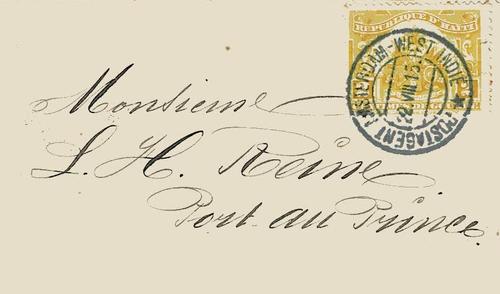 REPUBLIQUE D'HAITI
POSTAGENT AMSTERDAM-WEST INDIE
Monsieur
L. H. Reine
Port au Prince.